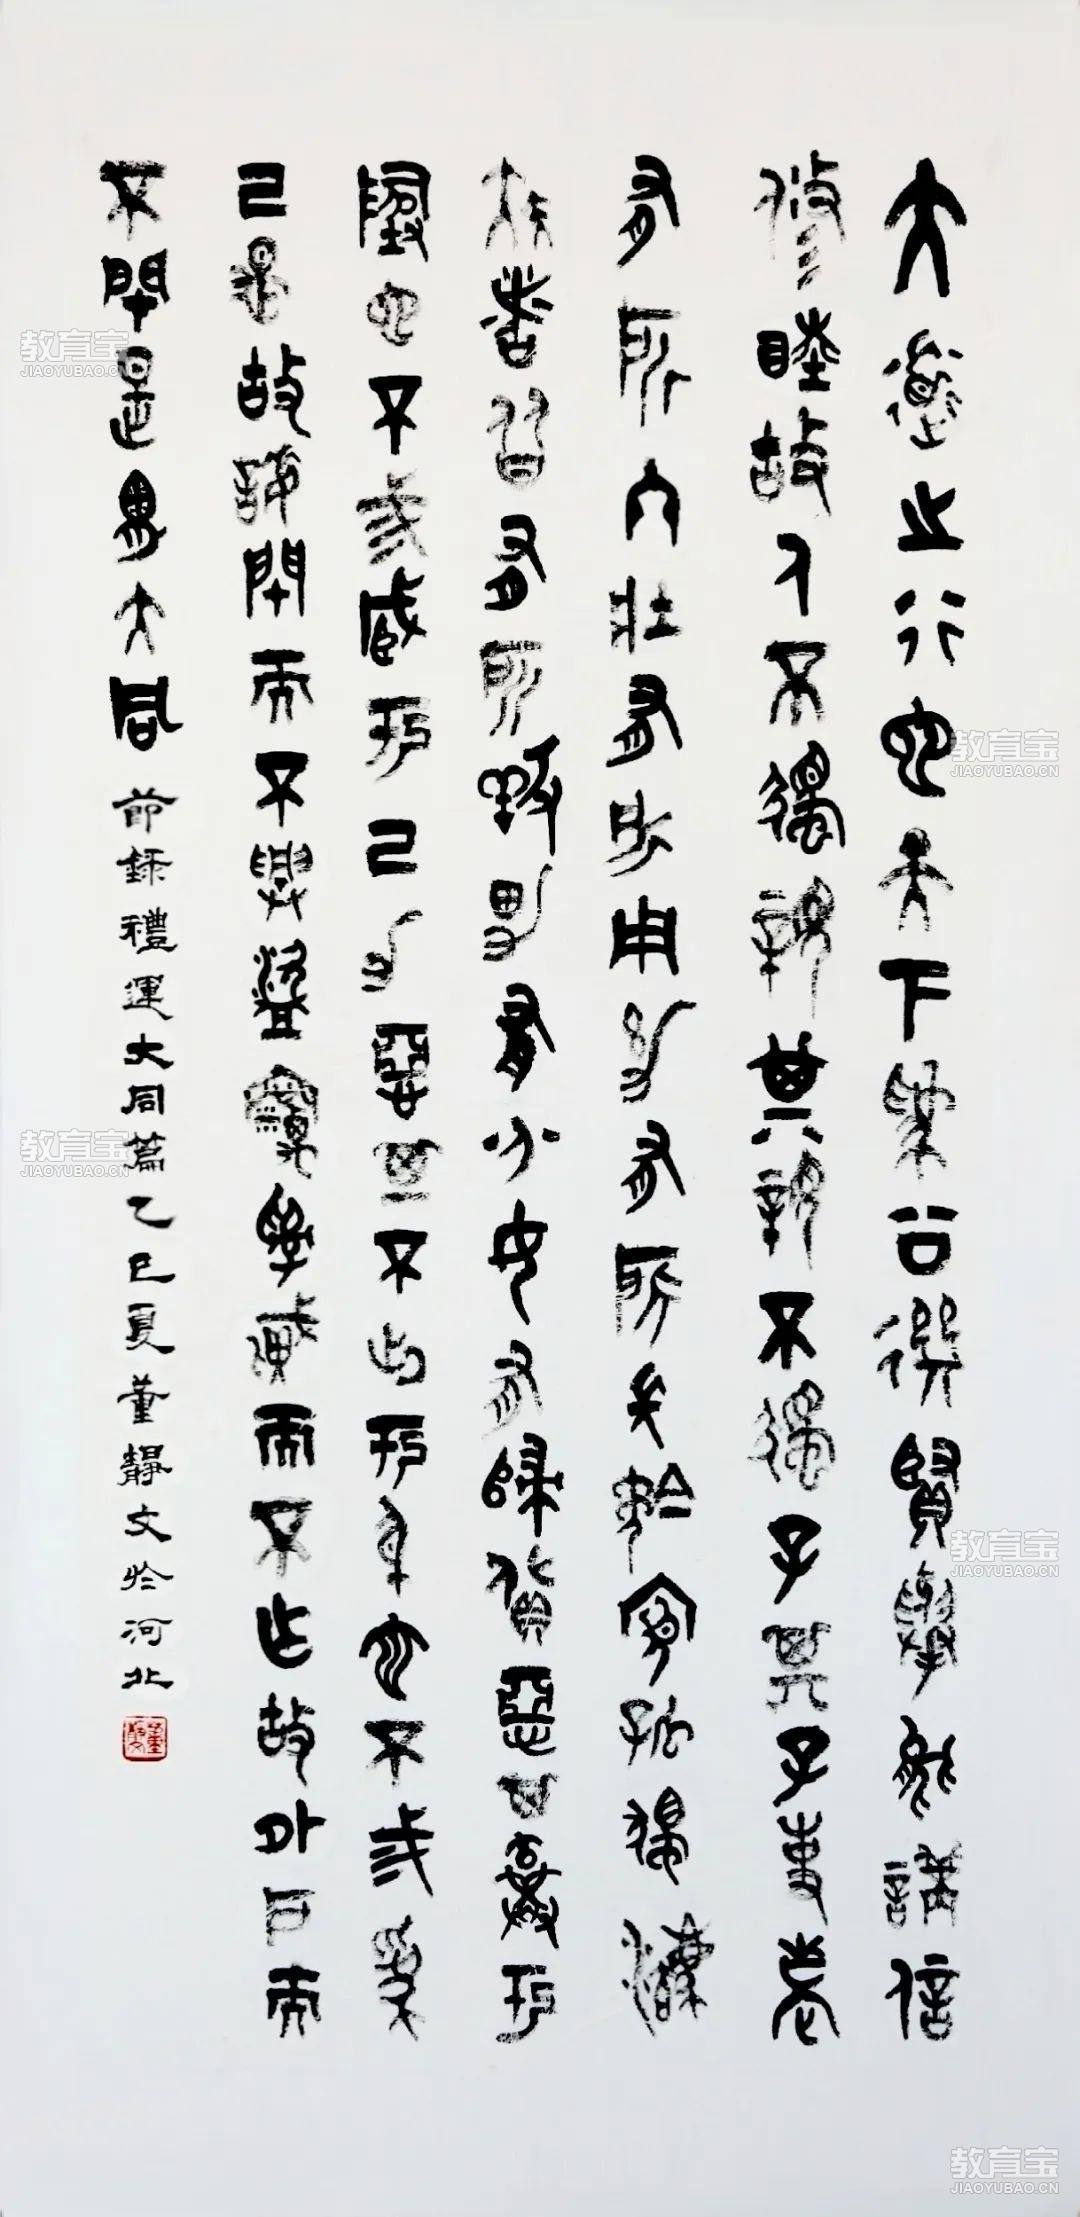 大道之行也天下為公選賢舉能講信
修睦故人不獨親其親不獨子其子使老
有所終壯有所用幼有所長矜寡孤獨廢
疾者皆有所養男有分女有歸貨惡其棄於
地也不必藏於己力惡其不出於身也不必為
己是故謀閉而不興盜竊亂賊而不作故外戶而
不閉是謂大同 節錄禮運大同篇乙巳夏董靜文於河北
教育宝
JIAOYUBAO.CN
教育宝
JIAOYUBAO.CN
教育宝
JIAOYUBAO.CN
教育宝
JIAOYUBAO.CN
教育宝
JIAOYUBAO.CN